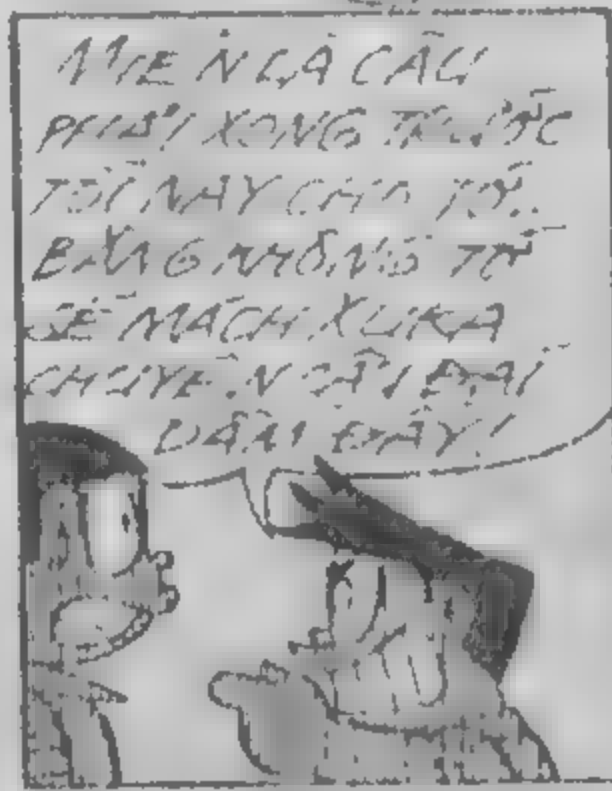 MIỄN LÀ CẬU
PHẢI XONG TRƯỚC
TỐI NAY CHO TỚ..
BẰNG KHÔNG TỚ
SẼ MÁCH XUKA
CHUYỆN CẬU ĐÁI
DẦM ĐẤY!